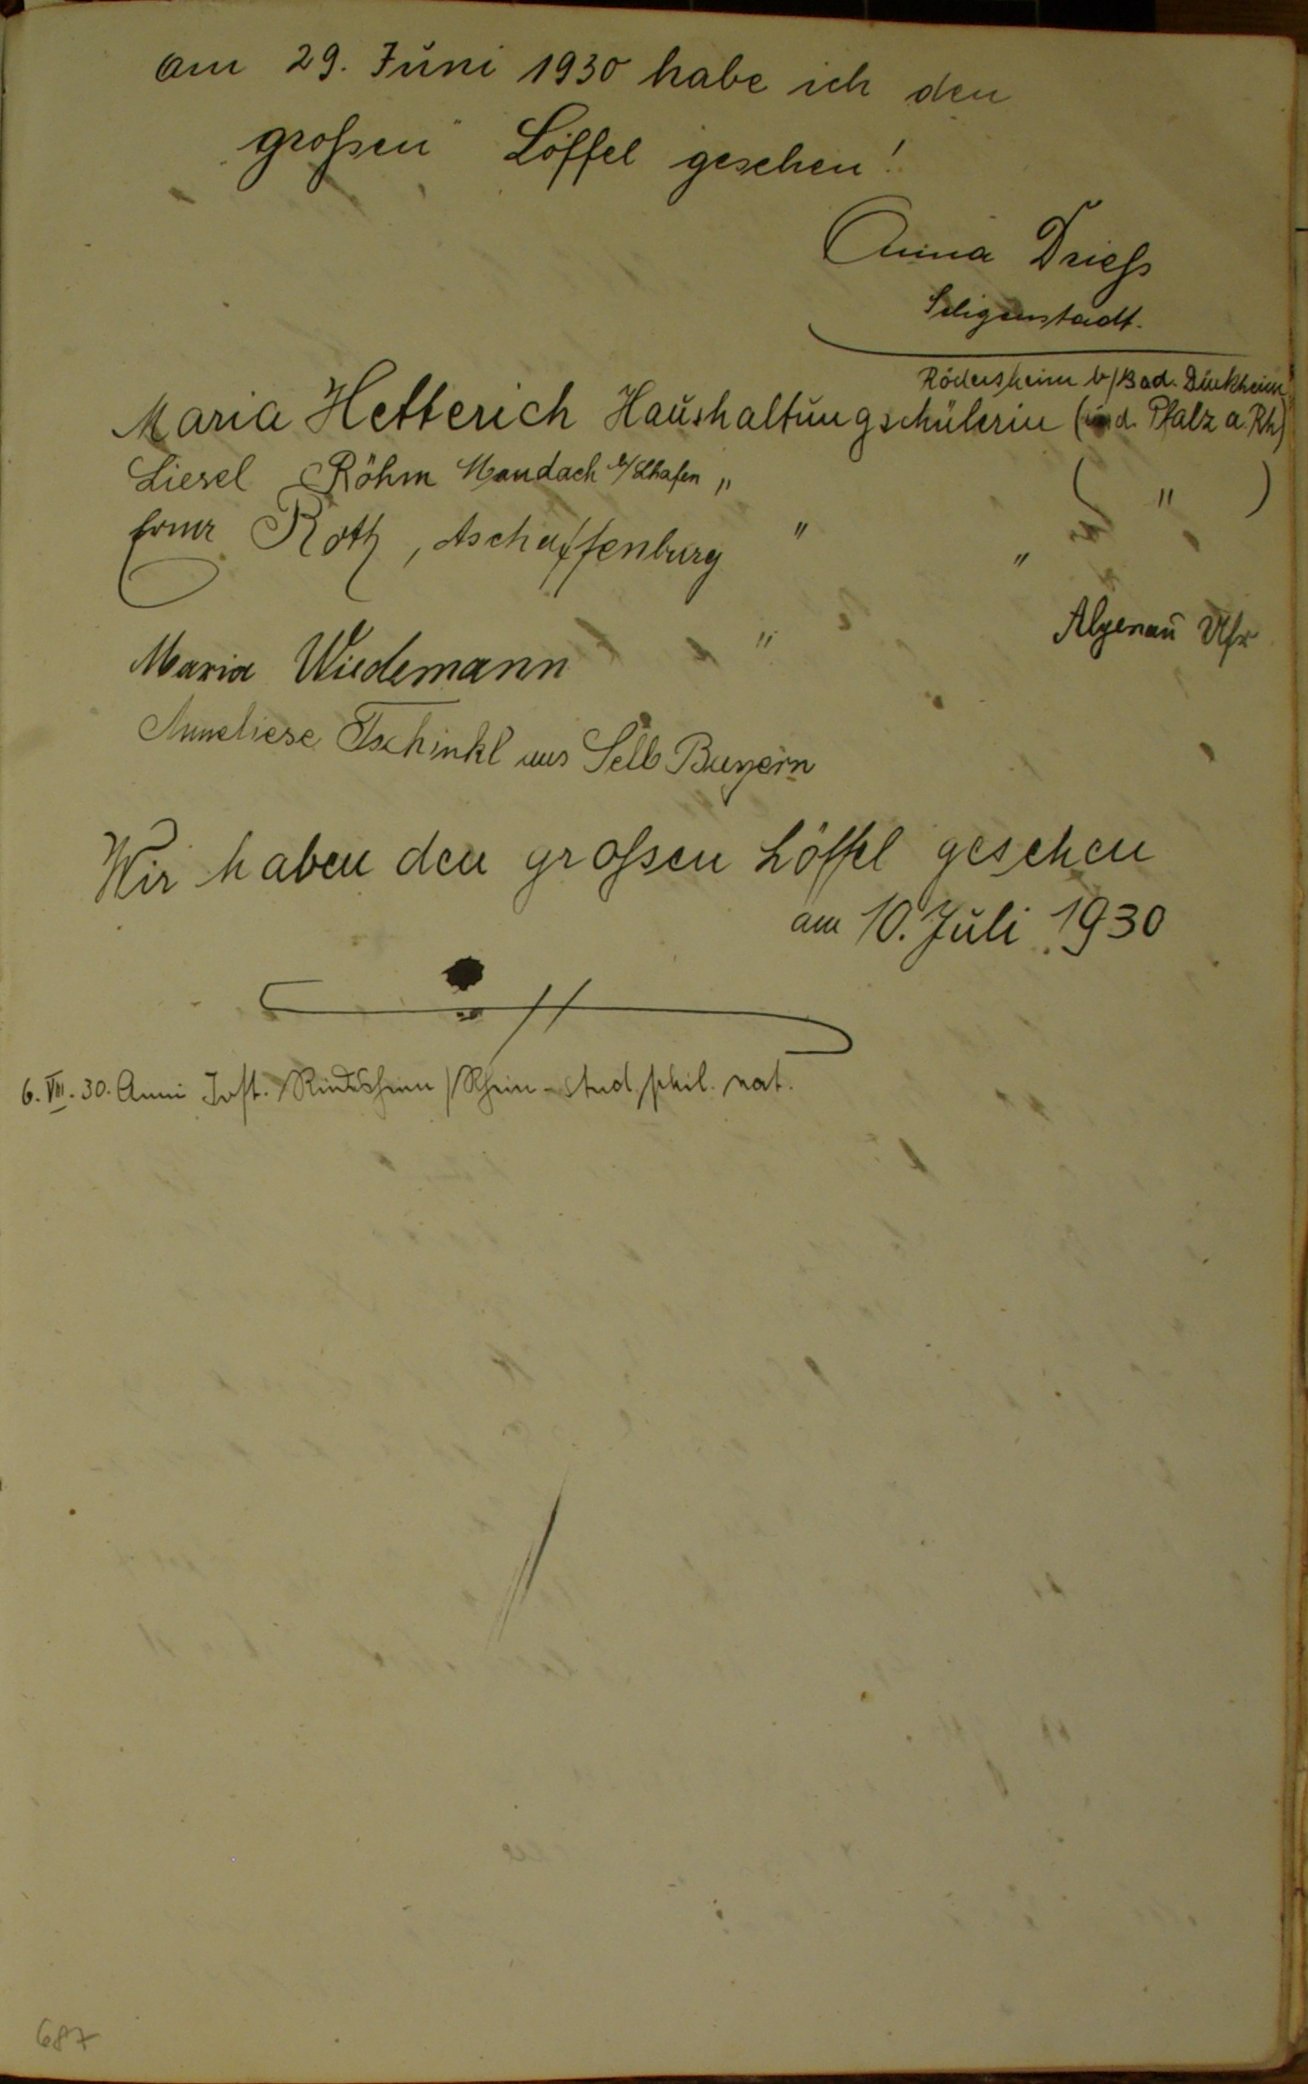 Am 29. Juni 1930 habe ich den
großen Löffel gesehen!
Anna Drieß
Seligenstadt.
Rödersheim b/Bad. Dürkheim
Maria Hetterich Haushaltungschülerin (in d. Pfalz a. Rh)
Liesel Röhm Maudach b/Lhafen " ( " )
Erna Roth, Aschaffenburg " "
Maria Wiedemann " Alzenau Ufr
Anneliese Tschinkl aus Selb Bayern
Wir haben den großen Löffel gesehen
am 10. Juli 1930
6. VIII. 30. Anni Jost. /Rhein - stud. phil. nat.
687